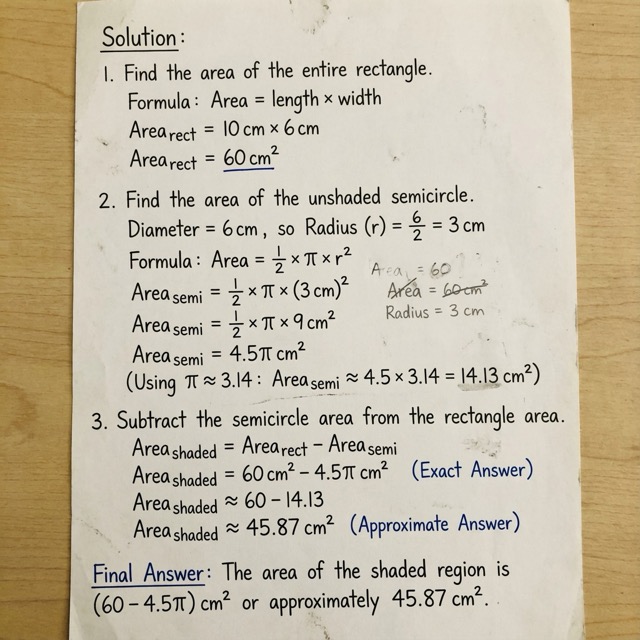 Solution:
1. Find the area of the entire rectangle.
Formula: Area = length × width
Area_rect = 10 cm × 6 cm
Area_rect = 60 cm²
2. Find the area of the unshaded semicircle.
Diameter = 6 cm, so Radius (r) = 6/2 = 3 cm
Formula: Area = 1/2 × π × r²
Area = 60
Area_semi = 1/2 × π × (3 cm)²
Area = 60 cm²
Radius = 3 cm
Area_semi = 1/2 × π × 9 cm²
Area_semi = 4.5π cm²
(Using π ≈ 3.14 : Area_semi ≈ 4.5 × 3.14 = 14.13 cm²)
3. Subtract the semicircle area from the rectangle area.
Area_shaded = Area_rect − Area_semi
Area_shaded = 60 cm² − 4.5π cm² (Exact Answer)
Area_shaded ≈ 60 − 14.13
Area_shaded ≈ 45.87 cm² (Approximate Answer)
Final Answer: The area of the shaded region is
(60 − 4.5π) cm² or approximately 45.87 cm².